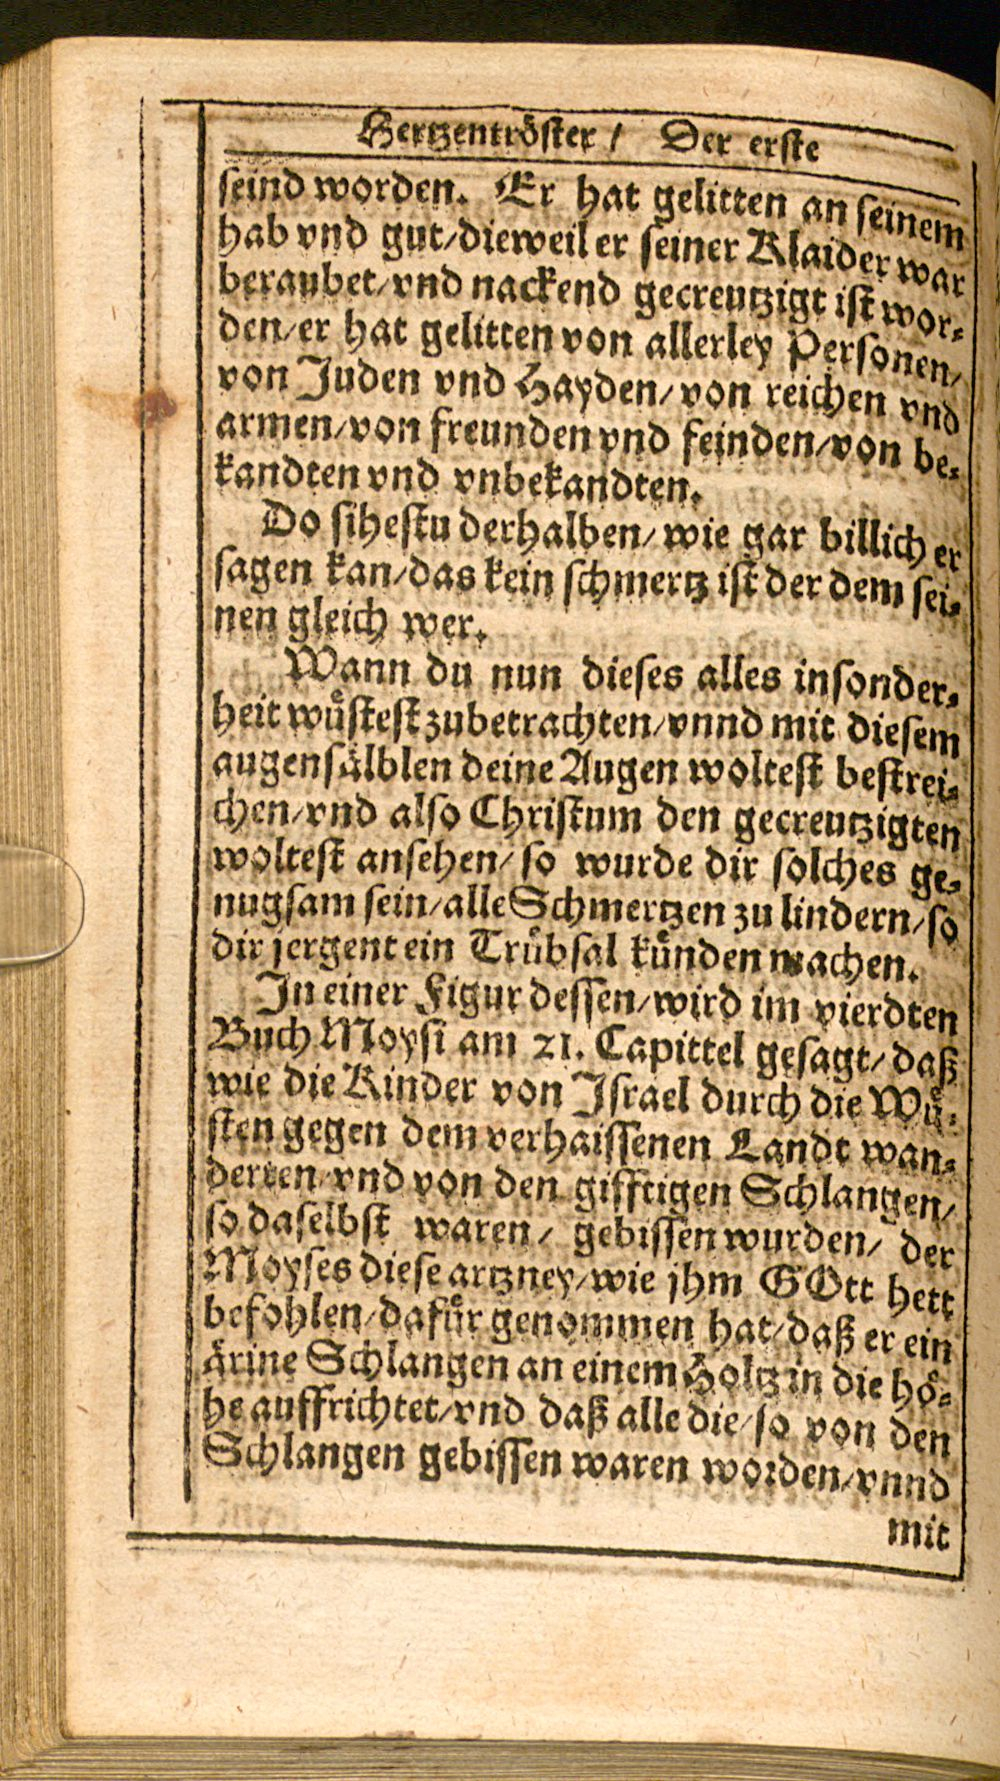 Hertzentröster / Der erste
seind worden. Er hat gelitten an seinem
hab vnd gut/dieweil er seiner Klaider war
beraubet/vnd nackend gecreutzigt ist wor-
den/er hat gelitten von allerley Personen/
von Juden vnd Hayden/von reichen vnd
armen/von freunden vnd feinden/von be-
kandten vnd vnbekandten.
Do sihestu derhalben/wie gar billich er
sagen kan/das kein schmertz ist der dem sei-
nen gleich wer.
Wann du nun dieses alles insonder-
heit wůstest zubetrachten/vnnd mit diesem
augensälblen deine Augen woltest bestrei-
chen/vnd also Christum den gecreutzigten
woltest ansehen/so wurde dir solches ge-
nugsam sein/alle Schmertzen zu lindern/so
dir jergent ein Trůbsal kůnden machen.
In einer Figur dessen/wird im vierdten
Buch Moysi am 21. Capittel gesagt/daß
wie die Kinder von Israel durch die Wů-
sten gegen dem verhaissenen Landt wan-
derten/vnd von den gifftigen Schlangen/
so daselbst waren/ gebissen wurden/ der
Moyses diese artzney/wie jhm GOtt hett
befohlen/dafůr genommen hat/daß er ein
ärine Schlangen an einem Holtz in die hö-
he auffrichtet/vnd daß alle die/so von den
Schlangen gebissen waren worden/vnnd
mit